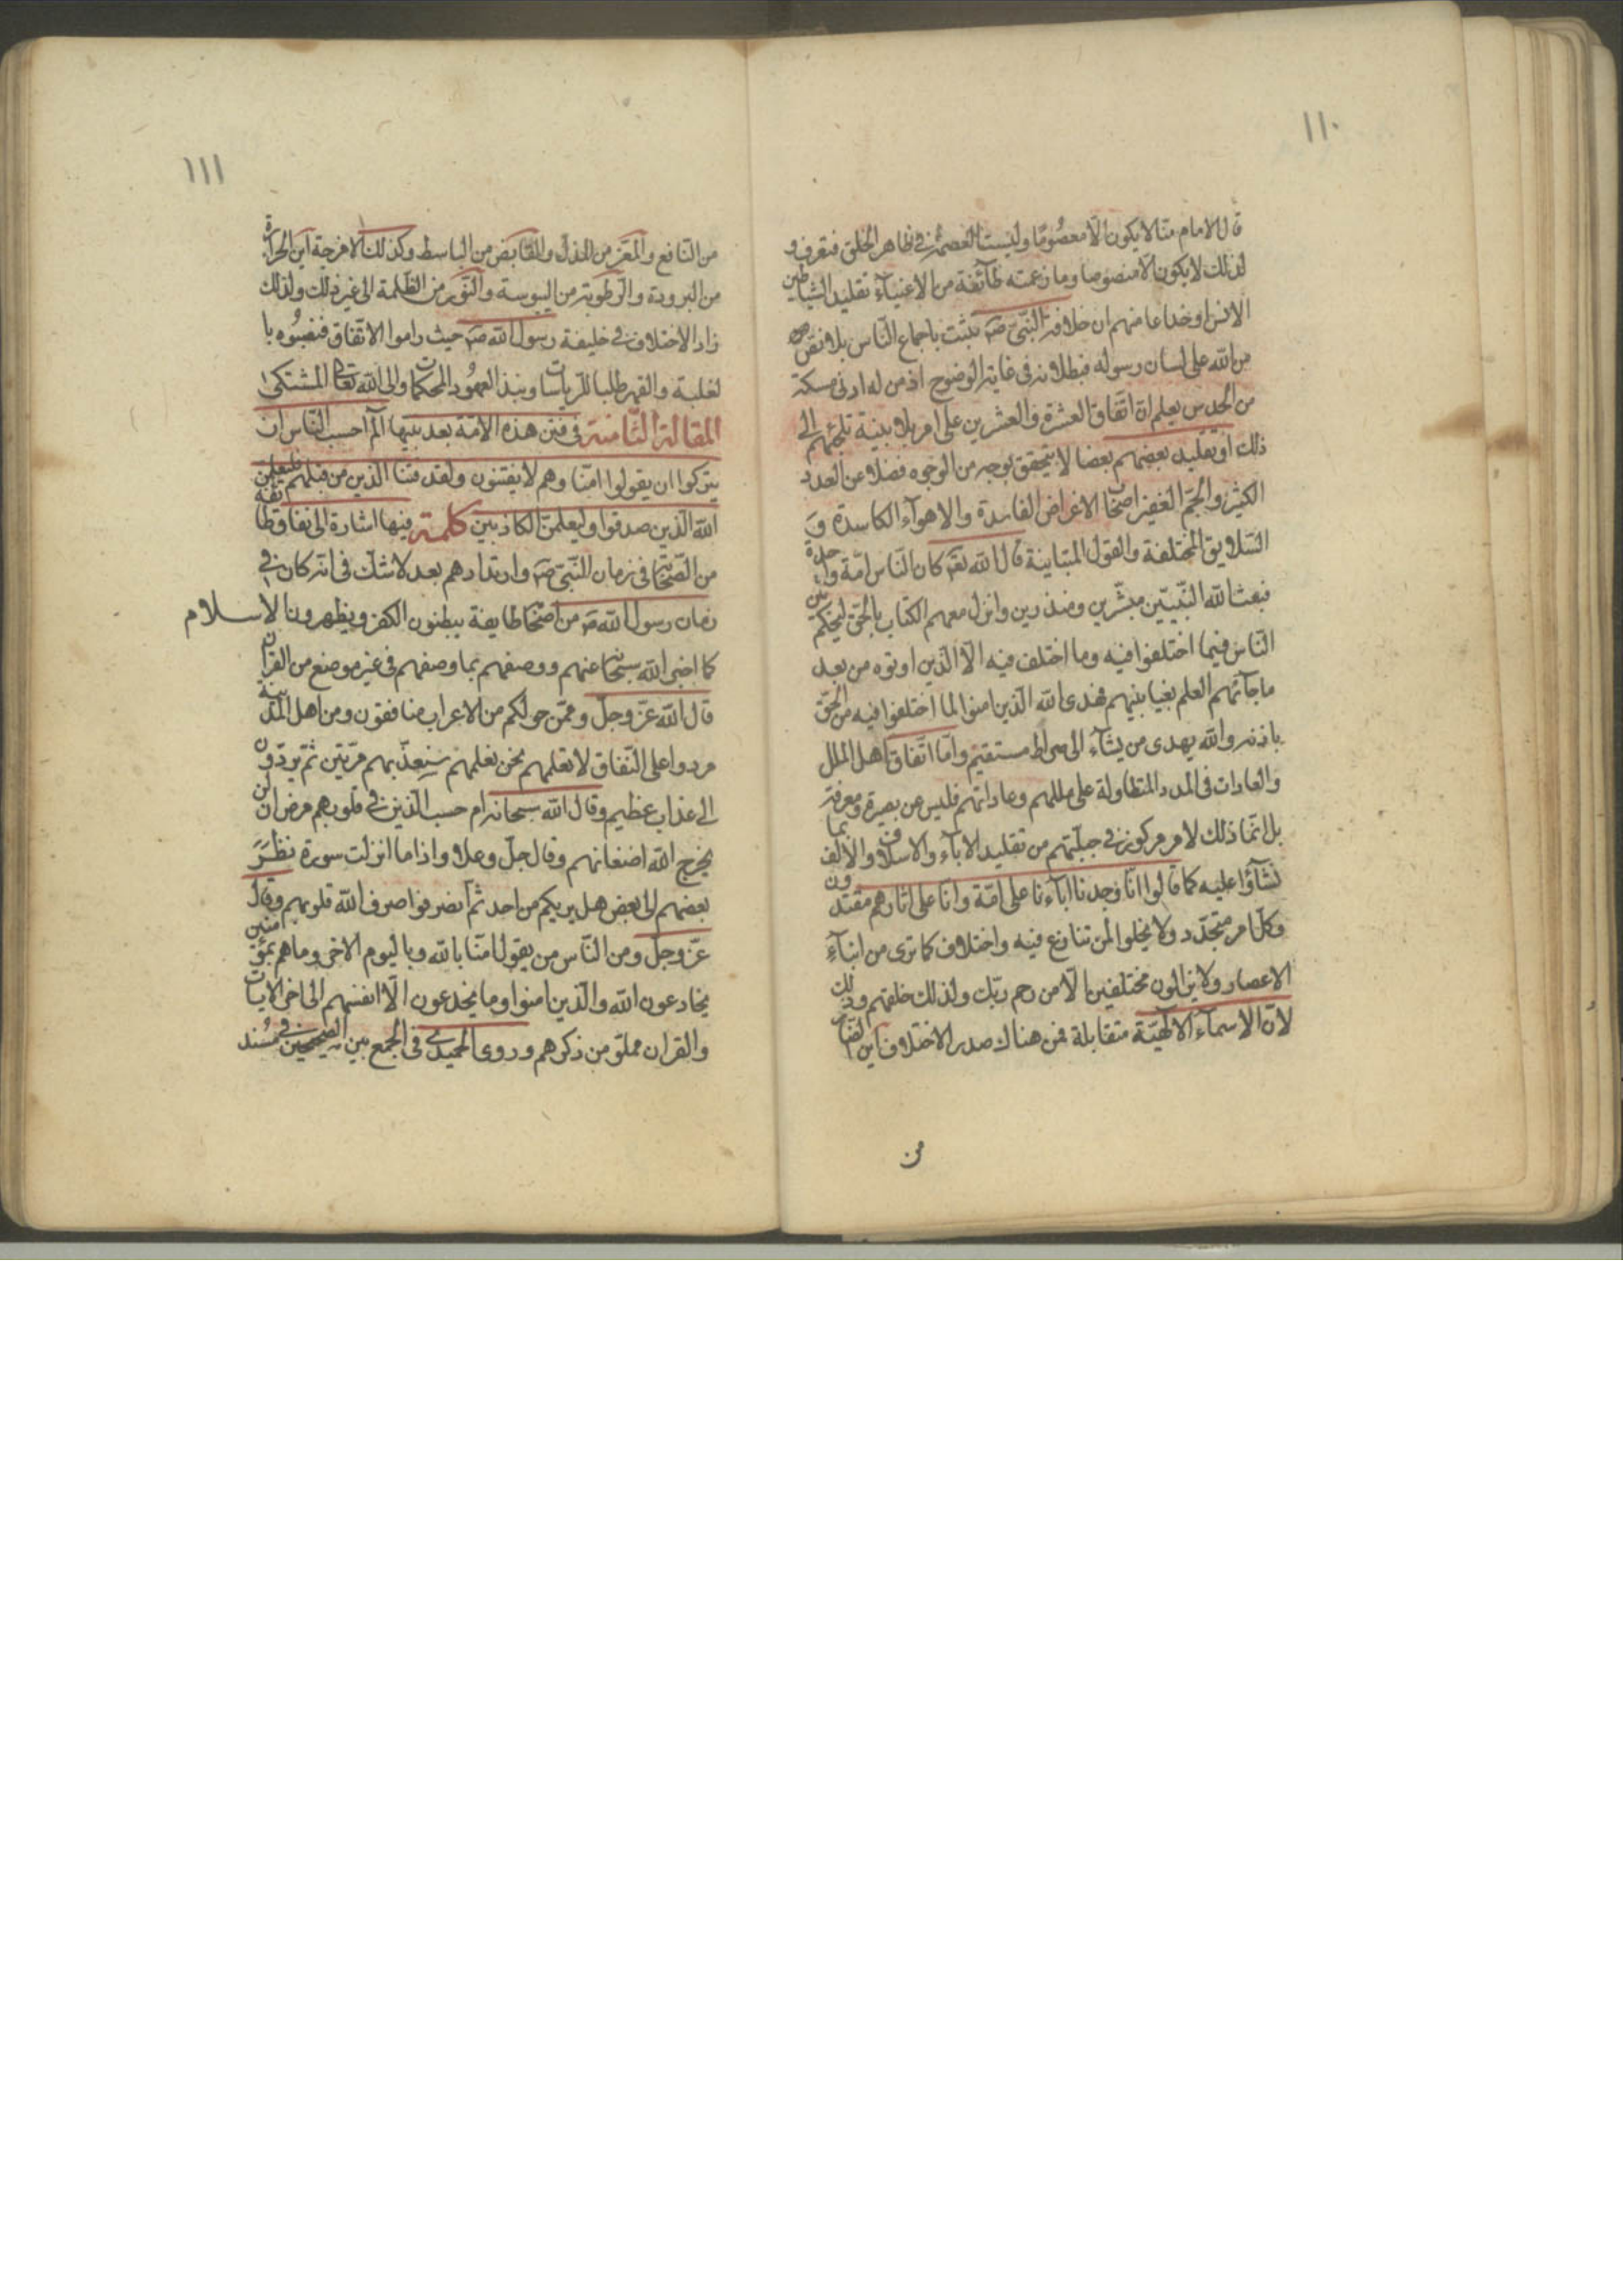 ١١٠
قال الامام منا لا يكون الا معصوما وليست العصمة في ظاهر الخلق فتعرف و
لذلك لا يكون الا منصوصا وما زعمته طآئفة من الاغنيآء تقليد الشياطين
الانس او خداعا منهم ان خلافة النبي صه يثبت باجماع الناس بلا نص
من الله على لسان رسوله فبطلانه في غاية الوضوح اذ من له ادنى مسكة
من الحدس يعلم ان اتفاق العشرة والعشرين على امر بلا بينة تلجئهم الى
ذلك او تقليد بعضهم بعضا لا يتحقق بوجه من الوجوه فضلا عن العدد
الكثير والجم الغفير اصحاب الاغراض الفاسدة والاهوآء الكاسدة و
السلايق المختلفة والعقول المتباينة قال الله تعه كان الناس امة واحدة
فبعث الله النبيين مبشرين ومنذرين وانزل معهم الكتاب بالحق ليحكم بين
الناس فيما اختلفوا فيه وما اختلف فيه الا الذين اوتوه من بعد
ما جآئتهم العلم بغيا بينهم فهدى الله الذين امنوا لما اختلفوا فيه من الحق
باذنه والله يهدى من يشآء الى صراط مستقيم واما اتفاق اهل الملل
والعادات في المدد المتطاولة على مللهم وعاداتهم فليس عن بصيرة ومعرفة
بل انما ذلك لامر مركوز في جبلتهم من تقليد الآباء والاسلاف والالف بما
نشآؤا عليه كما قالوا انا وجدنا اباءنا على امة وانا على اثارهم مقتدون
وكل امر متجدد ولا يخلوا من تنازع فيه واختلاف كما ترى من ابنآء
الاعصار ولا يزالون مختلفين الا من رحم ربك ولذلك خلقهم وذلك
لان الاسمآء الالهية متقابلة فمن هناك صدر الاختلاف اين الضار
من
١١١
من النافع والمعز من المذل والقابض من الباسط وكذلك الامزجة اين الحرارة
من البرودة والرطوبة من اليبوسة والنور من الظلمة الى غير ذلك ولذلك
زاد الاختلاف في خليفة رسول الله صه حيث راموا الاتفاق فنصبوه با
لغلبة والقهر طلبا للرياسات ونبذ العهود المحكمات والى الله تعالى المشتكى
المقالة الثامنة في فتن هذه الامة بعد نبيها الم احسب الناس ان
يتركوا ان يقولوا امنا وهم لا يفتنون ولقد فتنا الذين من قبلهم فليعلمن
الله الذين صدقوا وليعلمن الكاذبين كلمة فيها اشارة الى نفاق طايفة
من الصحابة في زمان النبي صه وارتدادهم بعد لا شك في انه كان في
زمان رسول الله صه من اصحابه طايفة يبطنون الكفر ويظهرون الاسلام
كما اخبر الله سبحانه عنهم ووصفهم بما وصفهم في غير موضع من القران
قال الله عز وجل وممن حولكم من الاعراب منافقون ومن اهل المدينة
مردوا على النفاق لا تعلمهم نحن نعلمهم سنعذبهم مرتين ثم يردون
الى عذاب عظيم وقال الله سبحانه ام حسب الذين في قلوبهم مرض ان لن
يخرج الله اضغانهم وقال جل وعلا واذا ما انزلت سورة نظر
بعضهم الى بعض هل يريكم من احد ثم انصرفوا صرف الله قلوبهم وقال
عز وجل ومن الناس من يقول امنا بالله وباليوم الاخر وما هم بمؤمنين
يخادعون الله والذين امنوا وما يخدعون الا انفسهم الى اخر الايات
والقران مملو من ذكرهم وروى الحميدى في الجمع بين الصحيحين في مسند